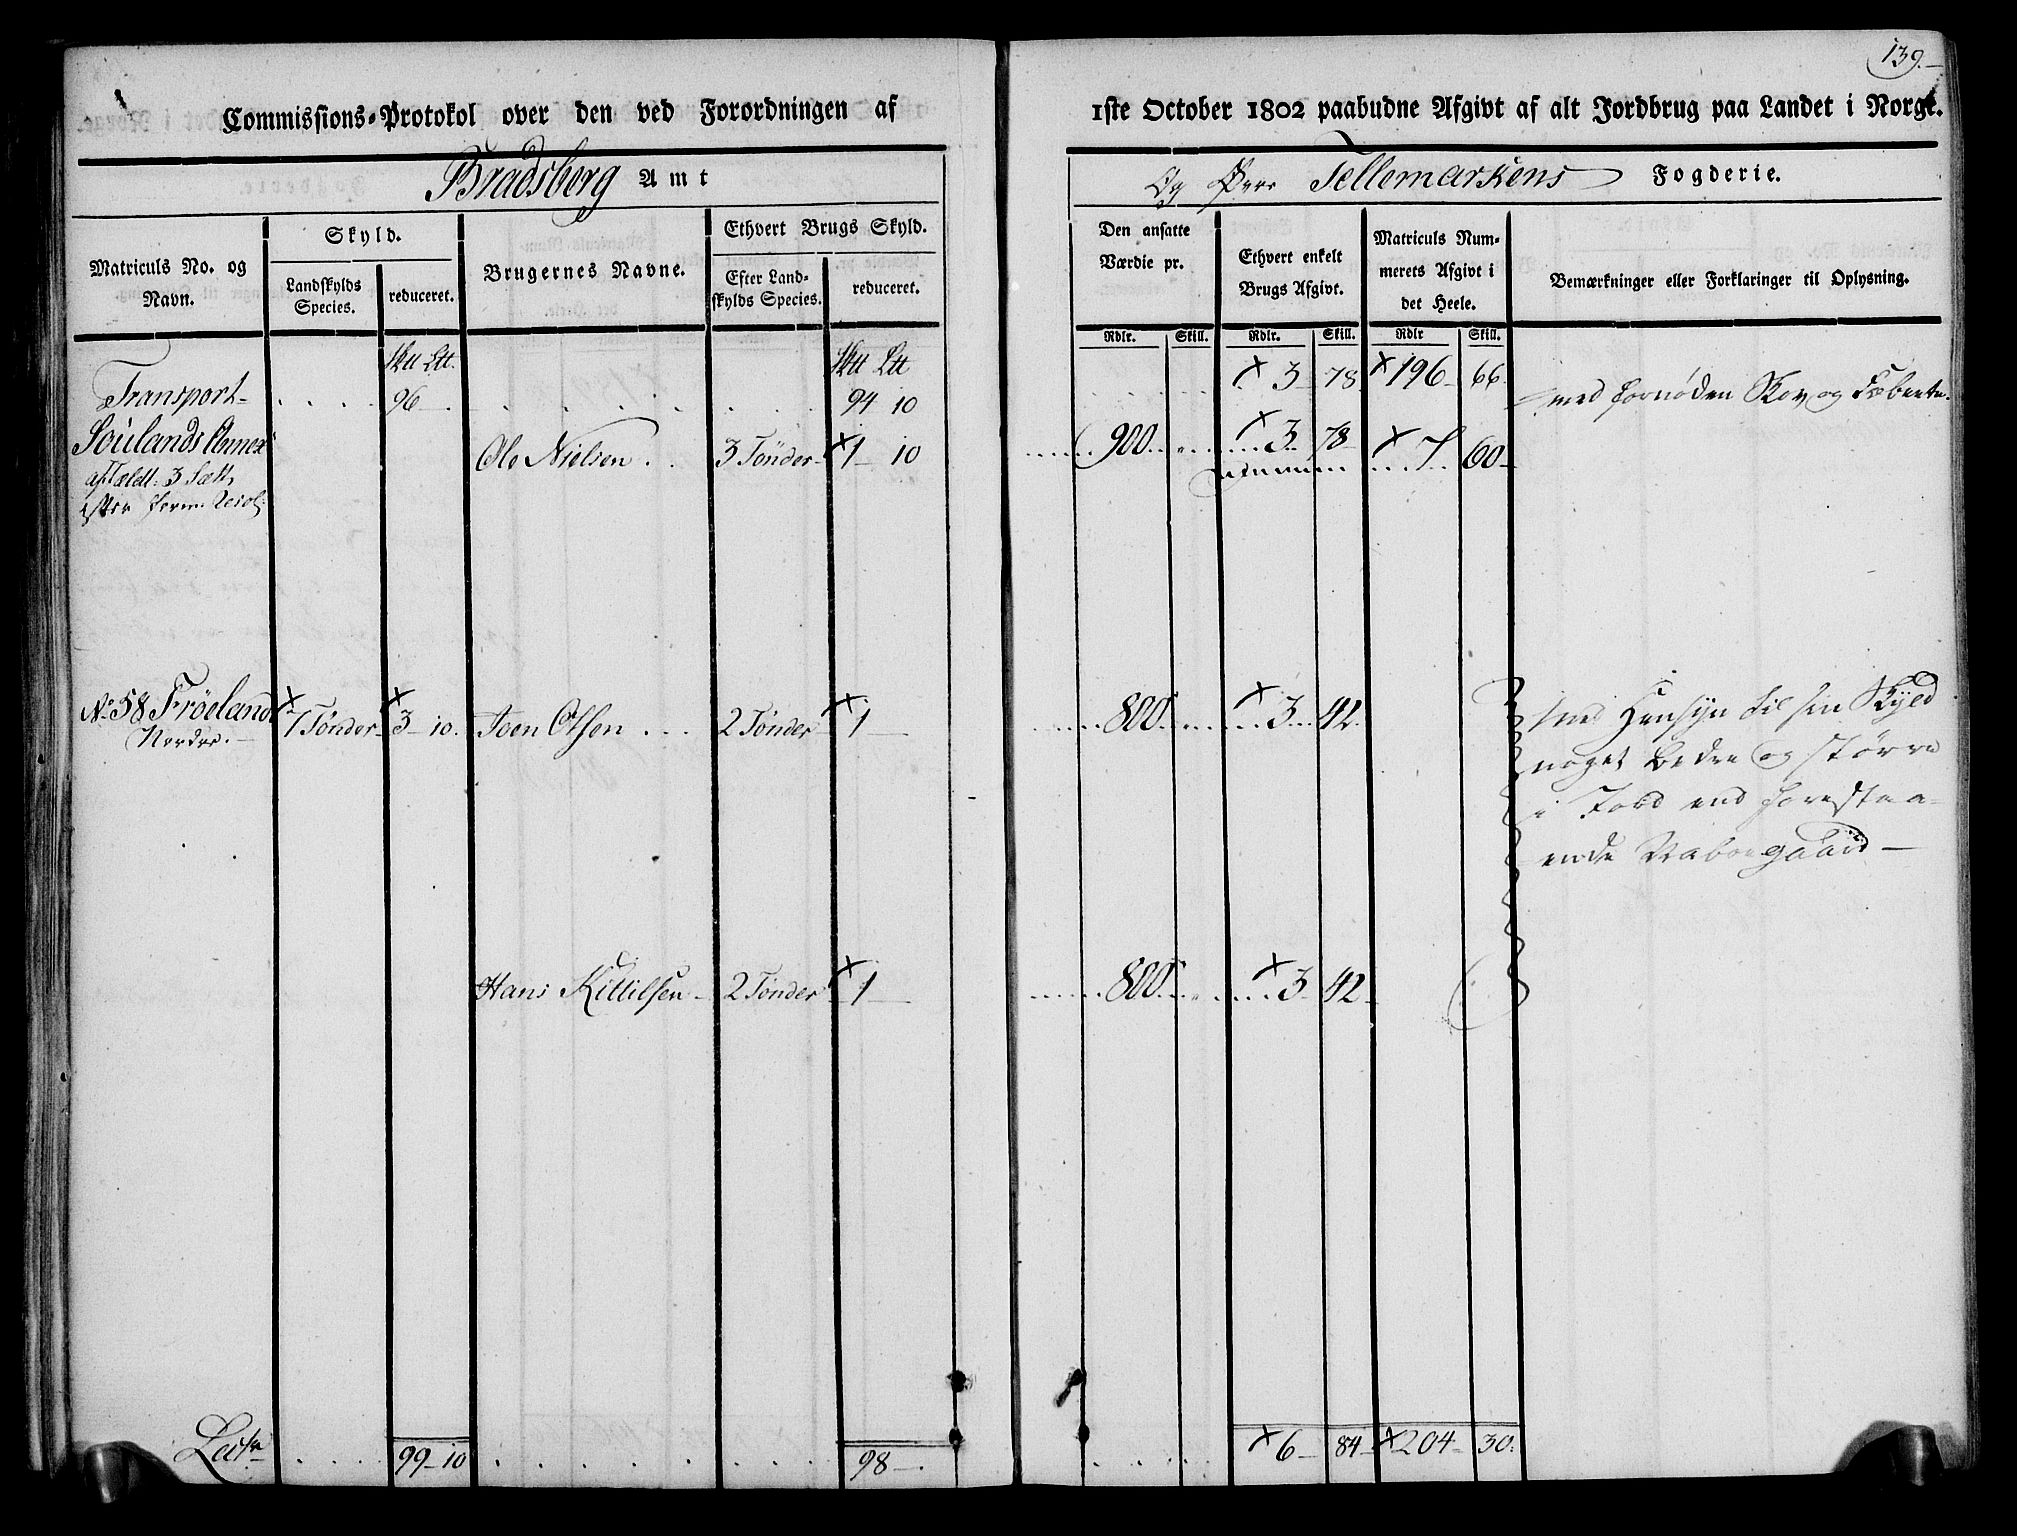 139.
Commissions-Protokol over den ved Forordningen af 1ste October 1802 paabudne Afgivt af alt Jordbrug paa Landet i Norge.
Bradsberg Amt
Og Øvre Tellemarkens Fogderie.
Matriculs No. og Navn.
Skyld.
Landskylds Species.
reduceret.
Brugernes Navne.
Ethvert Brugs Skyld.
Efter Landskylds Species.
reduceret.
Den ansatte Værdie pr.
Ethvert enkelt Brugs Afgivt.
Matriculs Nummerets Afgivt i det Heele.
Bemærkninger eller Forklaringer til Oplysning.
Rdlr. Skill. Rdlr. Skill. Rdlr Skill.
Transport 96 94 10 3 78 196 66
med fornøden Skov og
Soulands Annex Ole Nielsen 3 Tønder 1 10 900 3 78 7 60
No 58 Frøeland 7 Tønder 3 10 Joen Olsen 2 Tønder 1 800 3 42
Nordre
med Hensyn til sin Skyld
noget bedre og større
i Jord end foresta-
ende Nabogaard
Hans Kittilsen 2 Tønder 1 800 3 42
99 10 98 6 84 204 30